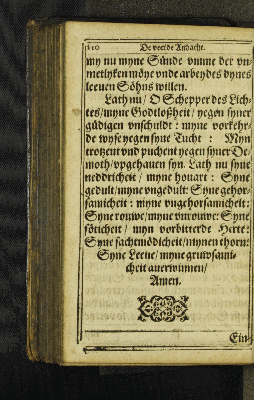 210 De veerde Andacht.
my nu myne Sünde vmme der vn-
metlyken möye vnde arbeydes dynes
leeuen Söhns willen.
Lath nu / O Schepper des Lich-
tes / myne Godtloßheit / yegen syner
güdigen vnschuldt : myne vorkehr-
de wyse yegen syne Tucht : Myn
trotzent vnd puchent yegen syner De-
moth / vpgehauen syn. Lath nu syne
neddricheit / myne houart : Syne
gedult / myne vngedult: Syne gehor-
samicheit : myne vngehorsamicheit:
Syne rouwe / myne vnrouwe: Syne
söticheit / myn vorbitterde Herte:
Syne sachtmödicheit / mynen thorn:
Syne Leeue / myne gruwsami-
cheit auerwinnen /
Amen.
Ein